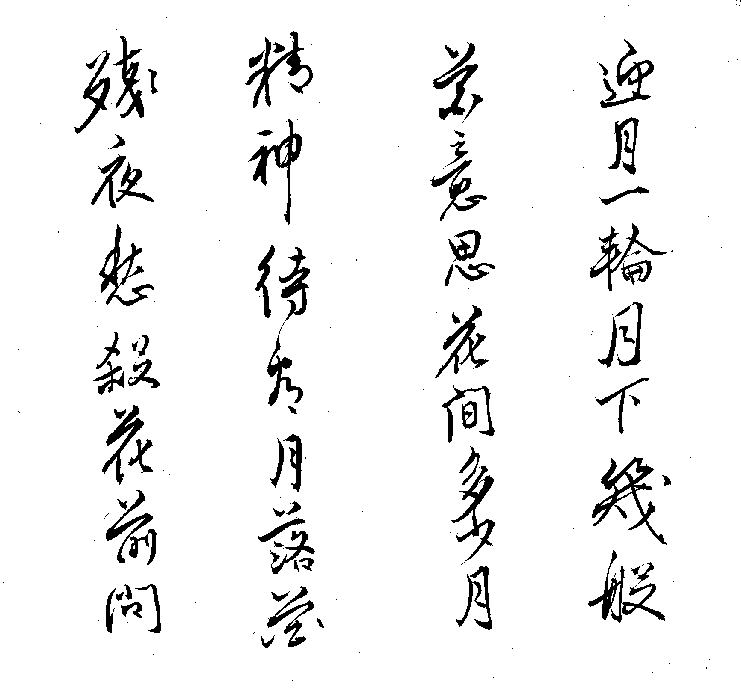 迎月一輪月下幾般
花意思花间多少月
精神待看月落花
殘夜愁殺花前問